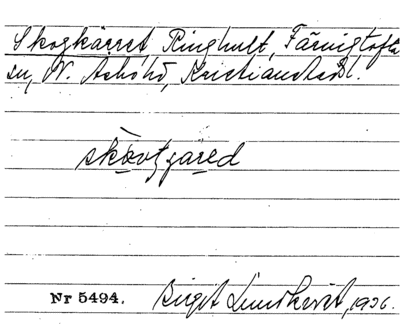 Skogkärret, Ringhult, Färingtofta
sn, N. Åsbo hd, Kristianstads l.
Nr 5494. Birgit Lundkvist, 1936.